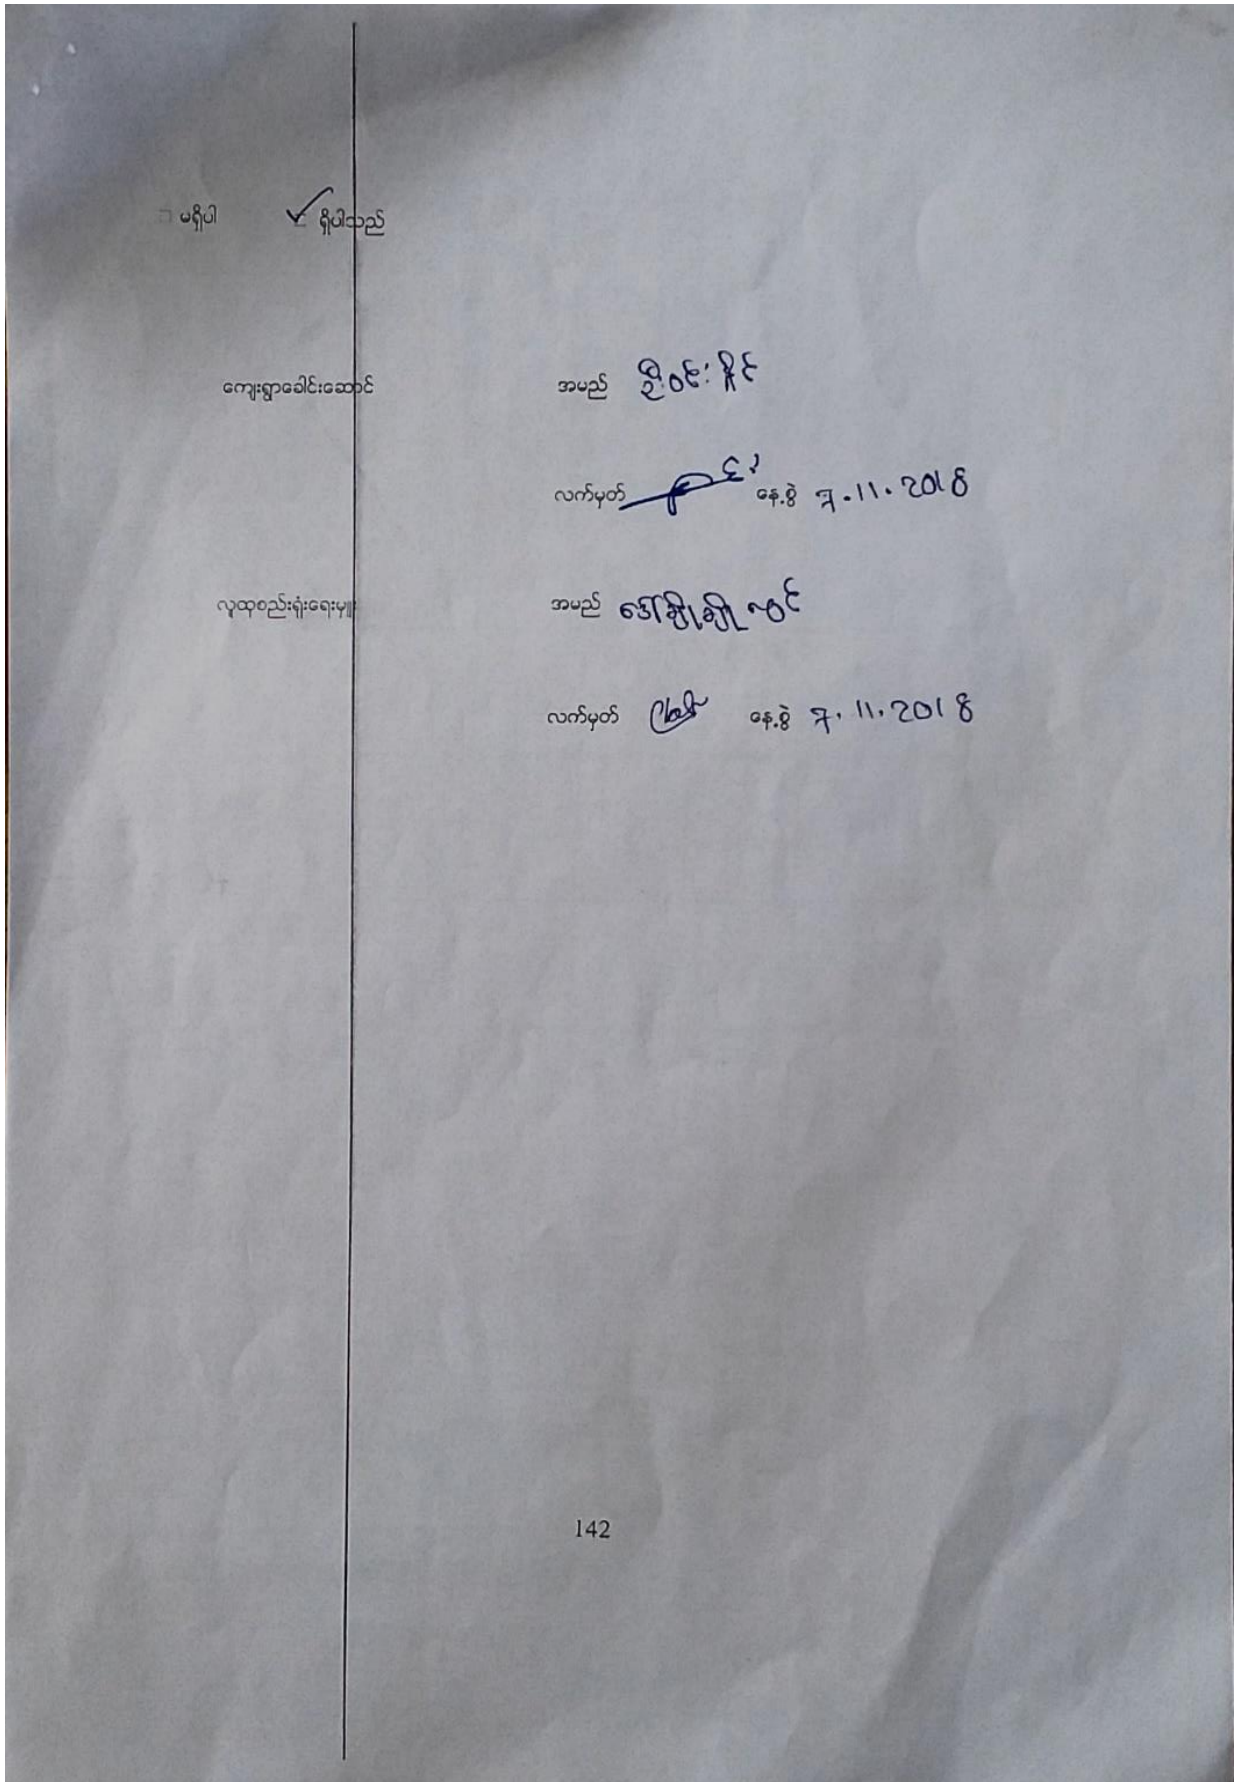 မရှိပါ ရှိပါသည်
ကျေးရွာခေါင်းဆောင် အမည် ဦးဝင်းနိုင်
လက်မှတ် နေ့စွဲ 7.11.2018
လူထုစည်းရုံးရေးမှူး အမည် ဒေါ်ချိုချိုလွင်
လက်မှတ် နေ့စွဲ 7.11.2018
142